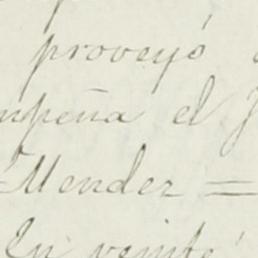 proveyó
mpeña el J
Mendez =
En veinte